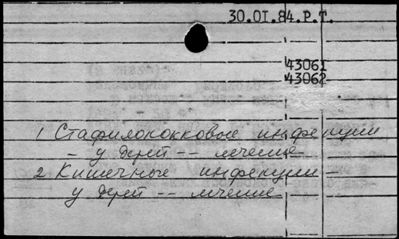 30.01.84.Р.Т.
43061
43062
1 Стафилококковые инфекции
- у детей -- лечение
2 Кишечные инфекции -
у детей -- лечение